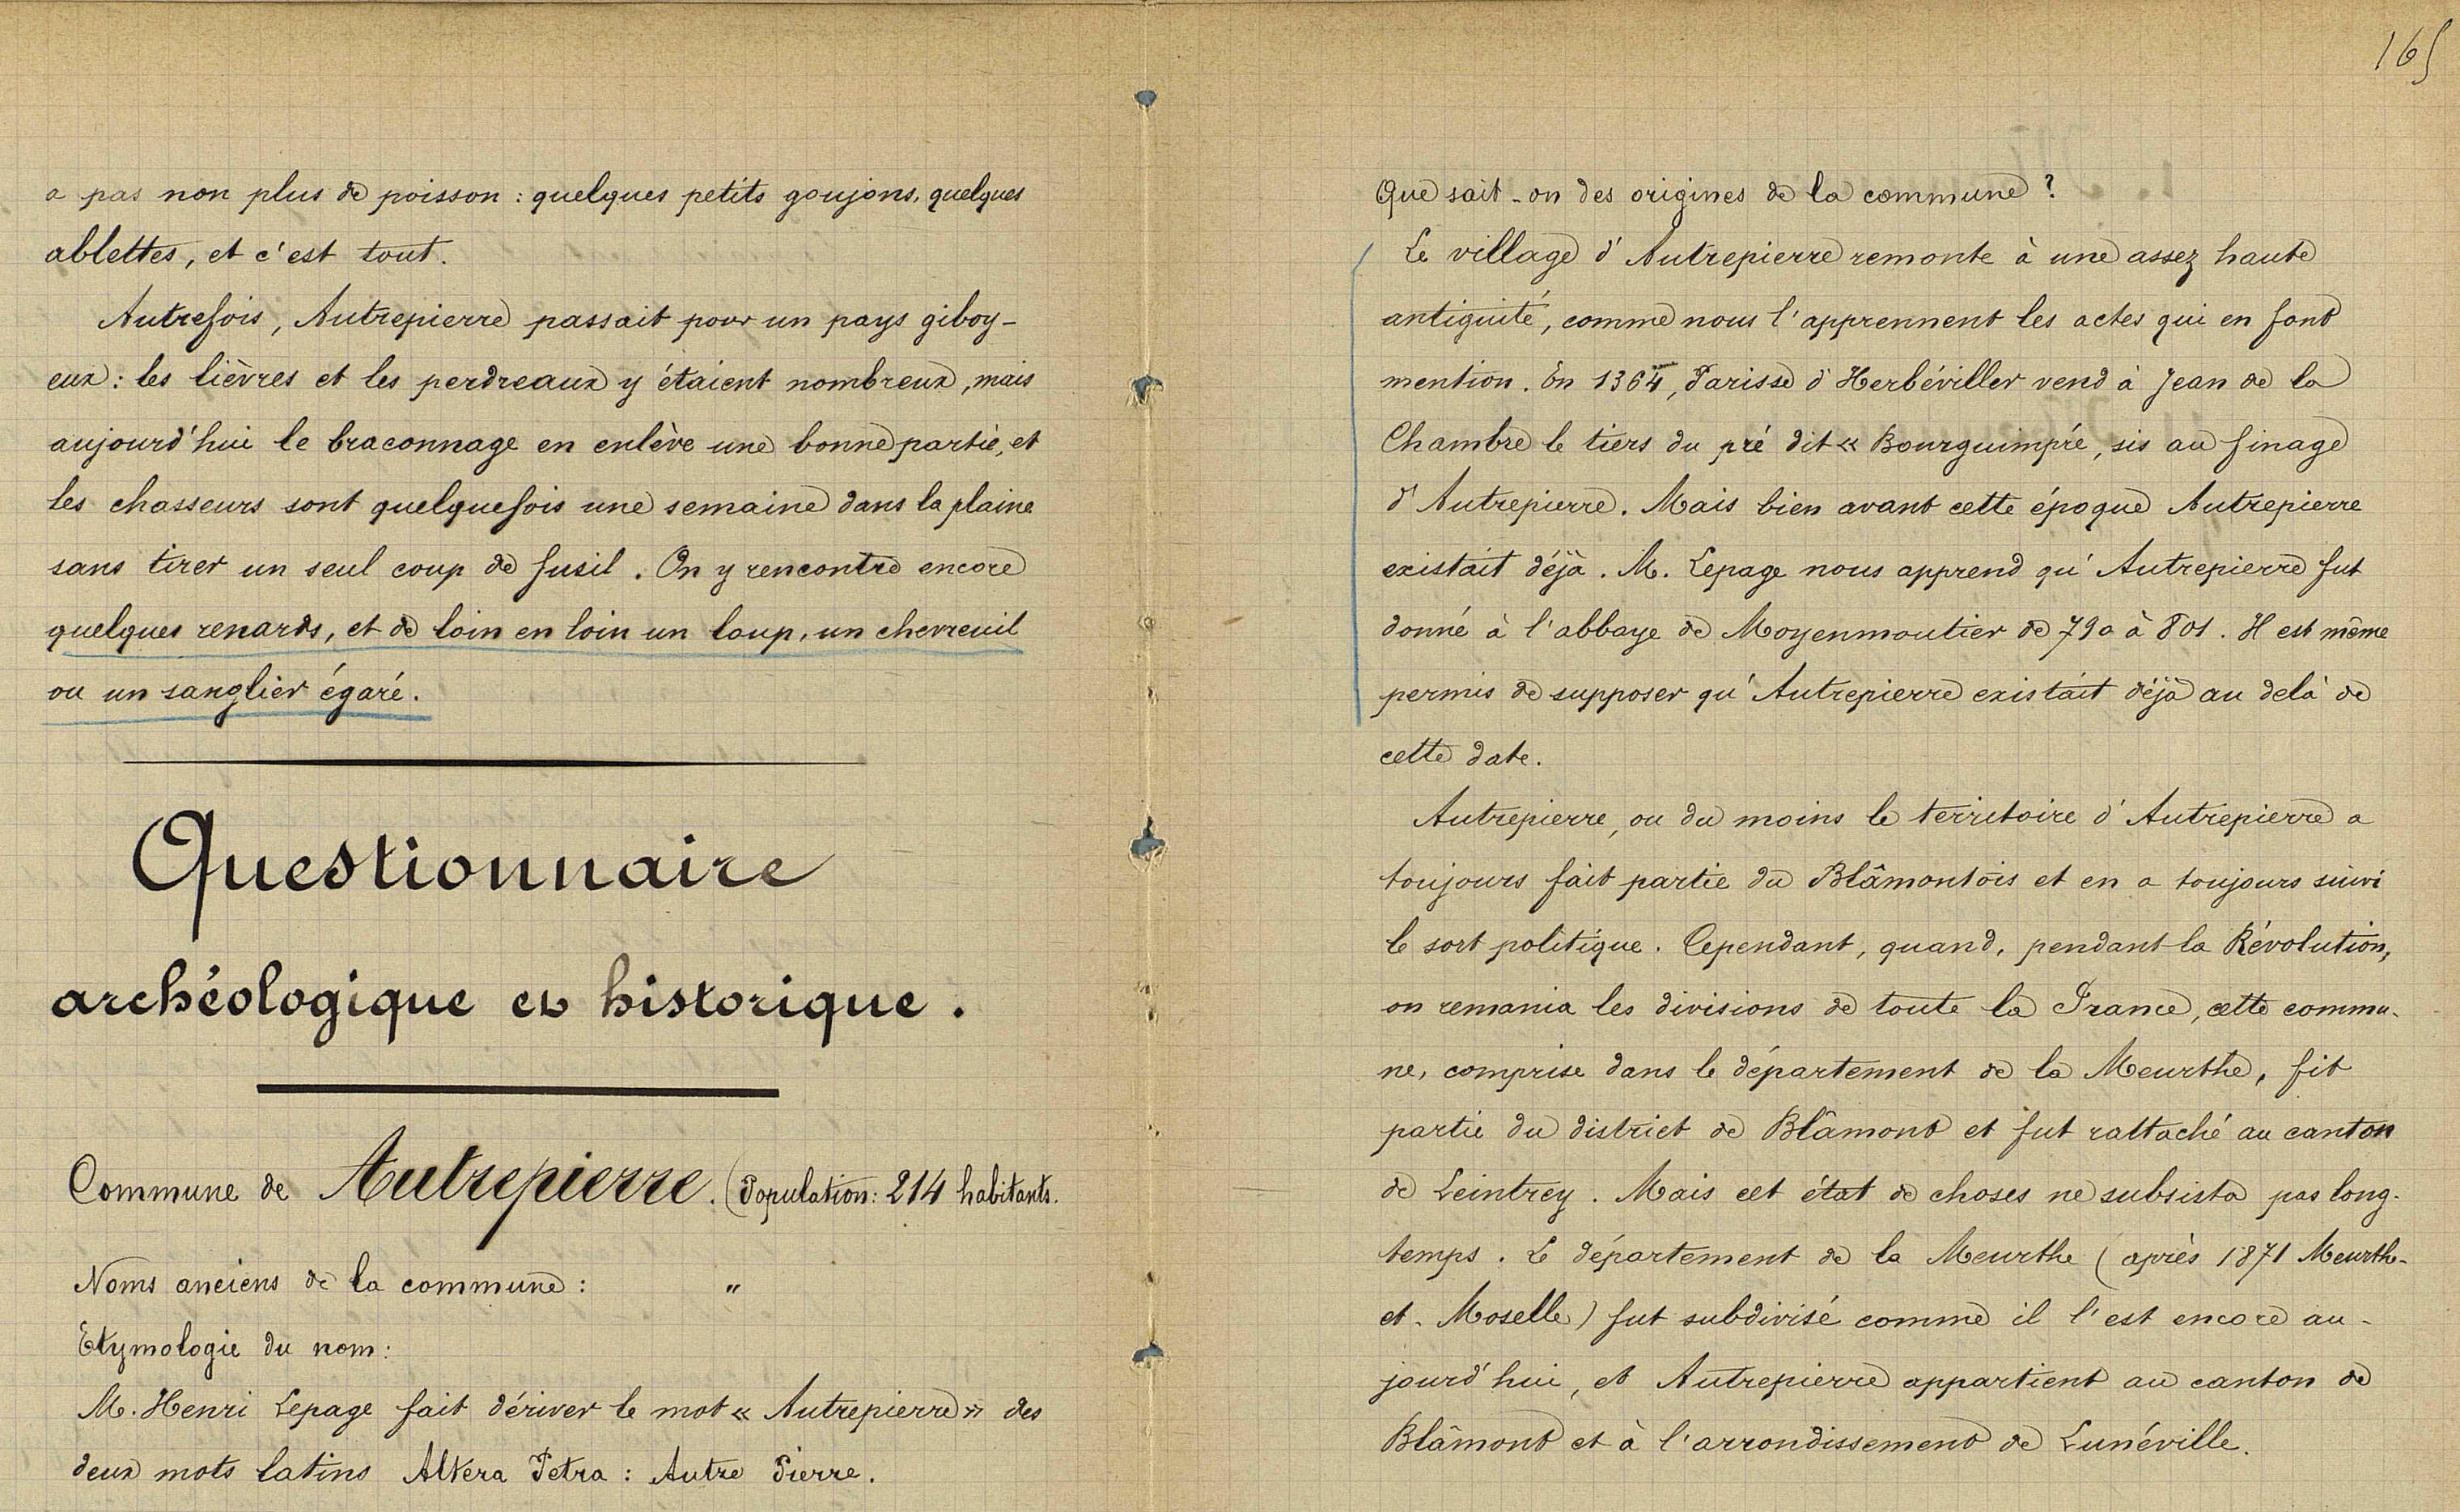 a pas non plus de poisson : quelques petits goujons, quelques
ablettes, et c'est tout.
Autrefois, Autrepierre passait pour un pays giboy-
eux : les lièvres et les perdreaux y étaient nombreux, mais
aujourd'hui le braconnage en enlève une bonne partie, et
les chasseurs sont quelquefois une semaine dans la plaine
sans tirer un seul coup de fusil. On y rencontre encore
quelques renards, et de loin en loin un loup, un chevreuil
ou un sanglier égaré.
Questionnaire
archéologique et historique.
Commune de Autrepierre. (Population : 214 habitants.
Noms anciens de la commune : "
Etymologie du nom :
M. Henri Lepage fait dériver le mot « Autrepierre » des
deux mots latins Altera Petra : Autre Pierre.
165
Que sait-on des origines de la commune ?
Le village d'Autrepierre remonte à une assez haute
antiquité, comme nous l'apprennent les actes qui en font
mention. En 1364, Parisse d'Herbéviller vend à Jean de la
Chambre le tiers du pré dit « Bourguimpré, sis au finage
d'Autrepierre. Mais bien avant cette époque Autrepierre
existait déjà. M. Lepage nous apprend qu'Autrepierre fut
donné à l'abbaye de Moyenmoutier de 790 à 801. Il est même
permis de supposer qu'Autrepierre existait déjà au delà de
cette date.
Autrepierre, ou du moins le territoire d'Autrepierre a
toujours fait partie du Blâmontois et en a toujours suivi
le sort politique. Cependant, quand, pendant la Révolution,
on remania les divisions de toute la France, cette commu-
ne, comprise dans le département de la Meurthe, fit
partie du district de Blâmont et fut rattaché au canton
de Leintrey. Mais cet état de choses ne subsista pas long-
temps. Le département de la Meurthe (après 1871 Meurthe-
et-Moselle) fut subdivisé comme il l'est encore au-
jourd'hui, et Autrepierre appartient au canton de
Blâmont et à l'arrondissement de Lunéville.